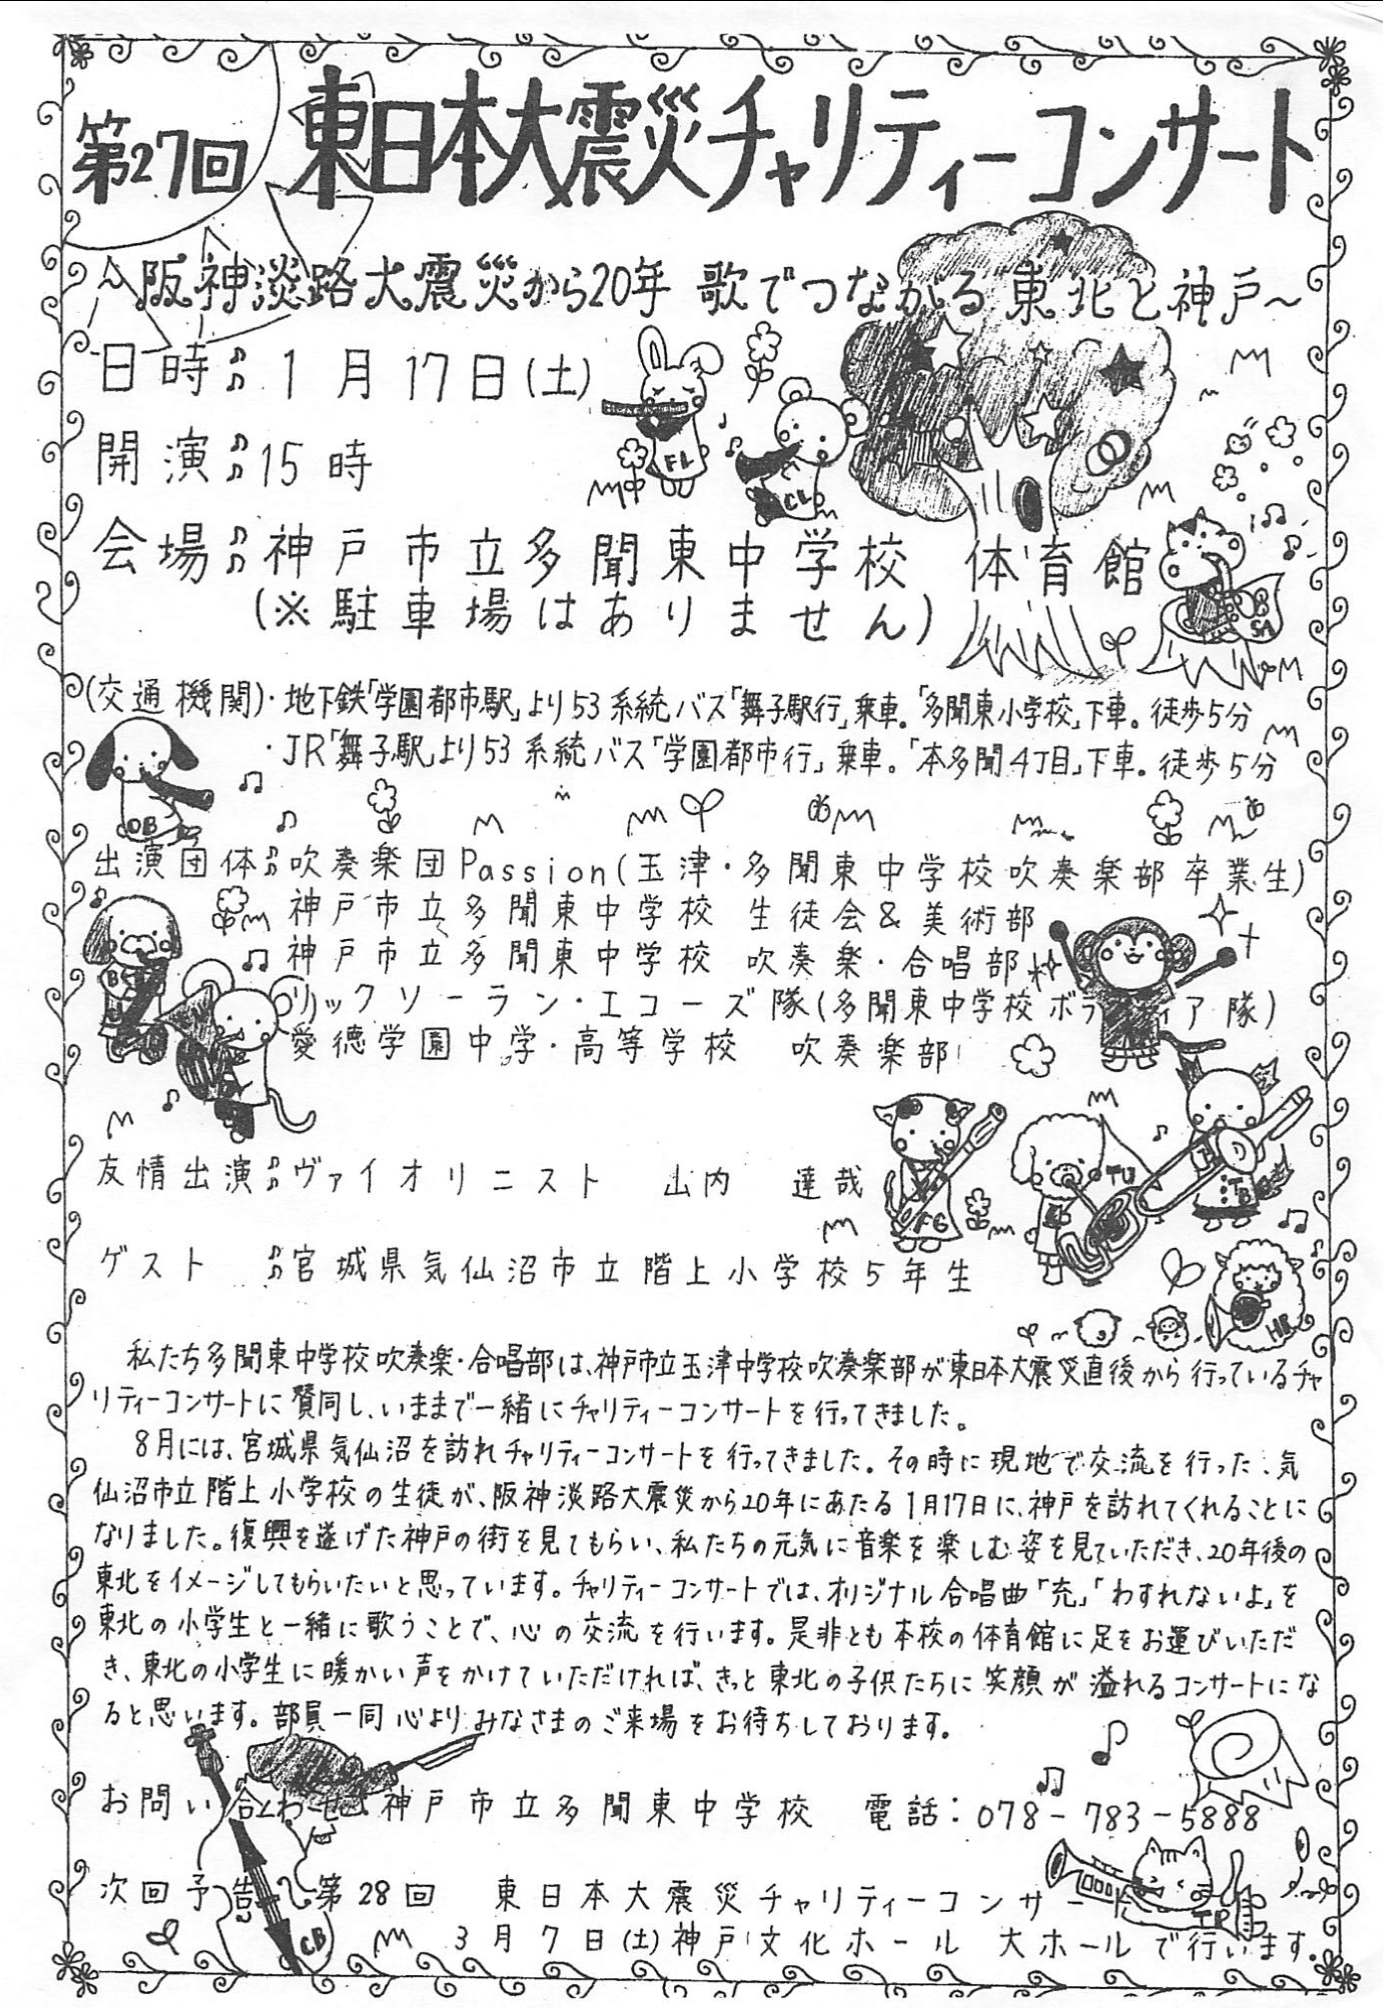 第27回 東日本大震災チャリティーコンサート
～阪神淡路大震災から20年 歌でつながる東北と神戸～
日時♫ 1月17日(土)
開演♫ 15時
会場♫ 神戸市立多聞東中学校 体育館
(※駐車場はありません)
(交通機関)・地下鉄「学園都市駅」より53系統バス「舞子駅行」乗車。「多聞東小学校」下車。徒歩5分
・JR「舞子駅」より53系統バス「学園都市行」乗車。「本多聞4丁目」下車。徒歩5分
出演団体♫吹奏楽団Passion(玉津・多聞東中学校吹奏楽部卒業生)
神戸市立多聞東中学校 生徒会&美術部
神戸市立多聞東中学校 吹奏楽・合唱部
リックソーラン・エコーズ隊(多聞東中学校ボランティア隊)
愛徳学園中学・高等学校 吹奏楽部
友情出演♫ヴァイオリニスト 山内 達哉
ゲスト ♫宮城県気仙沼市立階上小学校5年生
私たち多聞東中学校吹奏楽・合唱部は、神戸市立玉津中学校吹奏楽部が東日本大震災直後から行っているチャ
リティーコンサートに賛同し、いままで一緒にチャリティーコンサートを行ってきました。
8月には、宮城県気仙沼を訪れチャリティーコンサートを行ってきました。その時に現地で交流を行った、気
仙沼市立階上小学校の生徒が、阪神淡路大震災から20年にあたる1月17日に、神戸を訪れてくれることに
なりました。復興を遂げた神戸の街を見てもらい、私たちの元気に音楽を楽しむ姿を見ていただき、20年後の
東北をイメージしてもらいたいと思っています。チャリティーコンサートでは、オリジナル合唱曲「充」「わすれないよ」を
東北の小学生と一緒に歌うことで、心の交流を行います。是非とも本校の体育館に足をお運びいただ
き、東北の小学生に暖かい声をかけていただければ、きっと東北の子供たちに笑顔が溢れるコンサートにな
ると思います。部員一同心よりみなさまのご来場をお待ちしております。
お問い合わせ 神戸市立多聞東中学校 電話：078-783-5888
次回予告 第28回 東日本大震災チャリティーコンサート
3月7日(土)神戸文化ホール 大ホールで行います。
FL
CL
OB
FG
TU
TB
HR
CB
TP